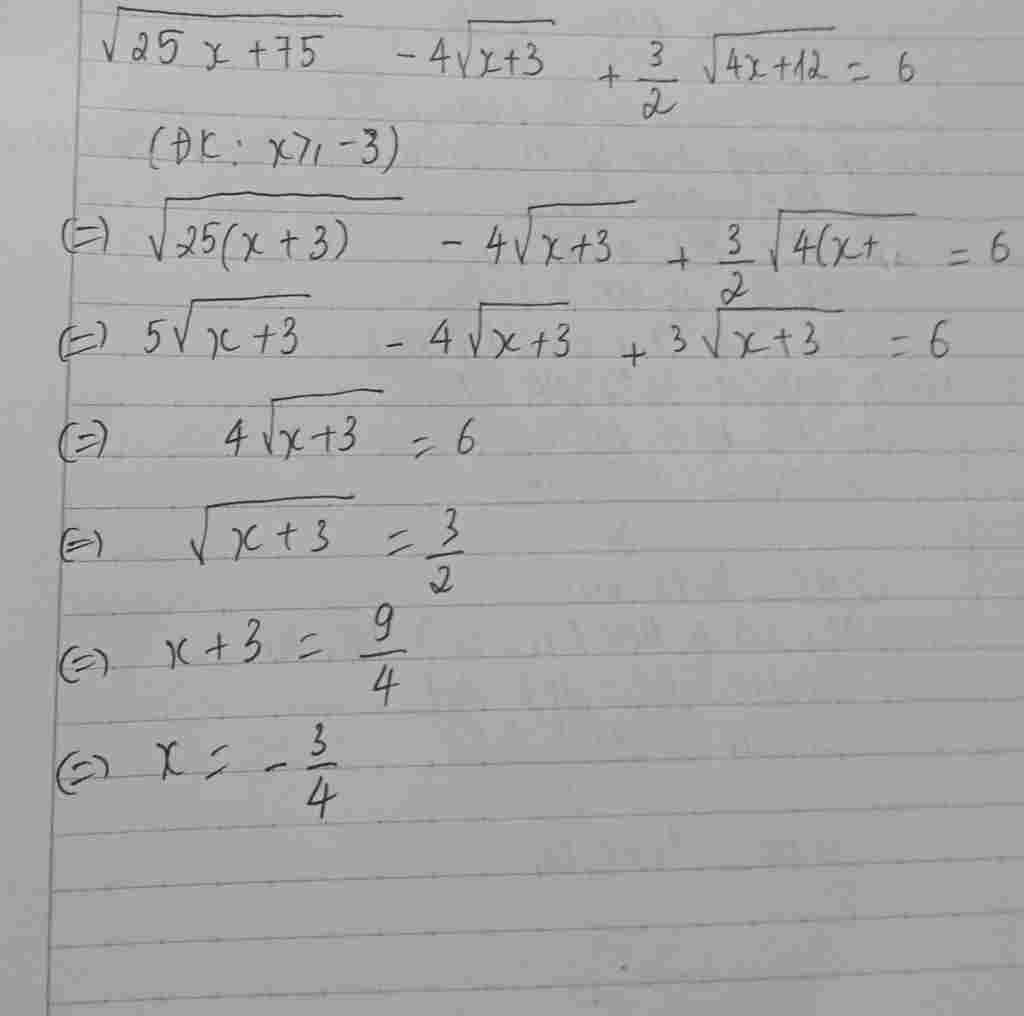 √(25x+75) - 4√(x+3) + 3/2 √(4x+12) = 6
(ĐK: x ≥ -3)
(=) √(25(x+3)) - 4√(x+3) + 3/2 √(4(x+ = 6
(=) 5√(x+3) - 4√(x+3) + 3√(x+3) = 6
(=) 4√(x+3) = 6
(=) √(x+3) = 3/2
(=) x+3 = 9/4
(=) x = -3/4